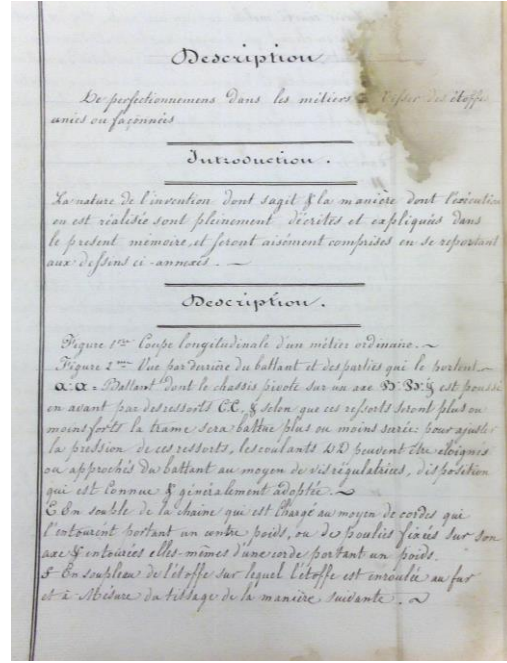 Description
De perfectionnemens dans les métiers à tisser des étoffes
unies ou façonnées
Introduction.
La nature de l'invention dont sagit & la manière dont l'exécution
en est réalisée sont pleinement décrites et expliquées dans
le présent mémoire, et seront aisément comprises en se reportant
aux dessins ci-annexés. ~
Description.
Figure 1ère Coupe longitudinale d'un métier ordinaire. ~
Figure 2me Vue par derrière du battant et des parties qui le portent. ~
a. a = Battant dont le chassis pivote sur un axe & est poussé
en avant par des ressorts C.C, & selon que ces ressorts seront plus ou
moins forts la trame sera battue plus ou moins serrée: pour ajuster
la pression de ces ressorts, les coulants D.D peuvent être éloignés
ou approchés du battant au moyen de vis régulatrices, disposition
qui est connue & généralement adoptée. ~
E En souble de la chaine qui est Chargé au moyen de cordes qui
l'entourent portant un contre poids, ou de poulies fixées sur son
axe & entourées elles-mêmes d'une corde portant un poids.
En soupleau de l'étoffe sur lequel l'étoffe est enroulée au fur
et à Mesure du tissage de la manière suivante. ~